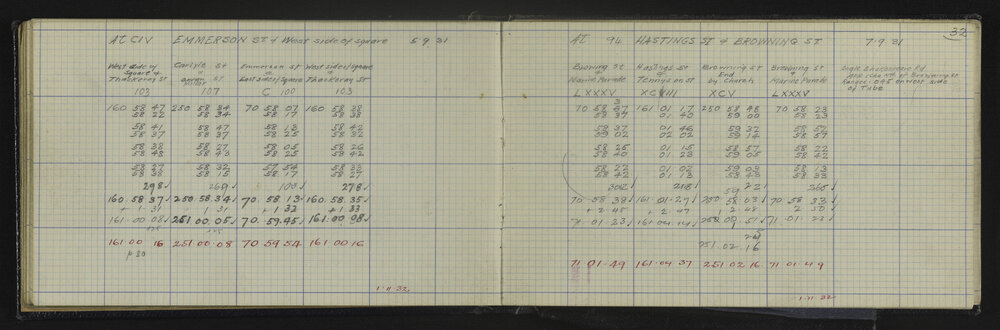 At CIV EMMERSON ST & West side of square 5.9.31
West side of Square & Thackeray St
Carlyle St & St
Emmerson St & East side of Square
West side of Square & Thackeray St
103 107 C 100 103
160 58 47 250 58 34 70 58 07 160 58 38
58 22 58 34 58 17 58 38
58 41 58 47 58 13 58 42
58 37 58 37 58 25 58 32
58 38 58 27 58 05 58 26
58 48 58 43 58 25 58 42
58 27 58 32 57 58 58 33
58 38 58 15 58 17 58 27
298 269 100 278
160.58.37 250.58.34 70.58.13 160.58.35
+1 31 1 31 +1 32 +1 33
161.00 08 251 00.05 70.59.45 161.00 08
125 125
161.00 16 251 00.08 70 59 54 161 00 16
1.11.32
32
At 94 HASTINGS ST & BROWNING ST 7.9.31
Browning St & Marine Parade
Hastings St & Tennyson St
Browning St End by Church
Browning St & Marine Parade
of Tube
LXXXV XCVIII XCV LXXXV
70 58 37 161 01 17 250 58 48 70 58 23
58 37 01 40 59 00 58 23
58 37 01 46 59 32 58 52
59 02 02 02 59 14 58 57
58 25 01 15 58 57 58 22
58 40 01 23 59 05 58 42
58 22 01 02 59 09 58 13
58 42 01 13 58 48 58 33
308 218 221 265
70 58 38 161.01.27 250 58 03 70 58 33
+2 45 +2 47 2 48 2 50
71 01 23 161 04 14 71 01 23
251.02 16
71 01 49 161 04 37 251 02 16 71 01 49
1.11.32